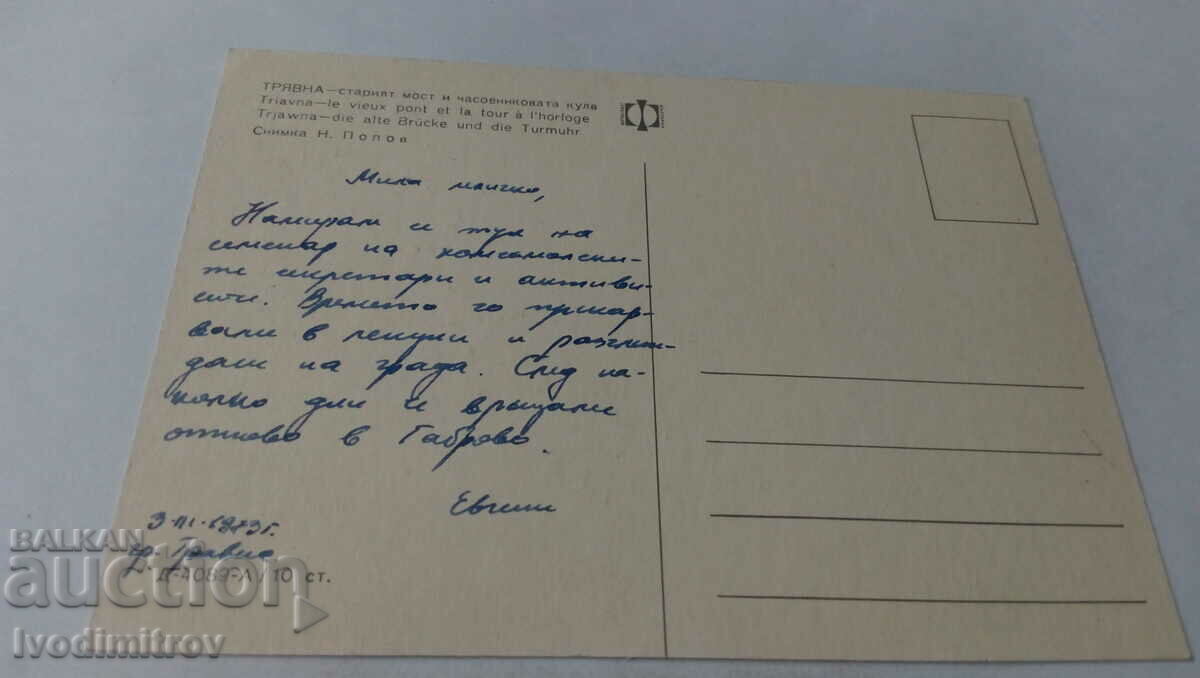 ТРЯВНА—старият мост и часовниковата кула
Triavna—le vieux pont et la tour à l'horloge
Trjawna—die alte Brücke und die Turmuhr
Снимка Н. Попов
Мила
Намирам се тук на
семинар на комсомолски-
те секретари и активи-
сти. Времето го прикар-
вали в лекции и разглеж-
дане на града. След ня-
колко дни се връщаме
отново в Габрово.
Евгени
3-III-1973г.
гр. Трявна
Д-4089-А / 10 ст.
BALKAN
auction
Ivodimitrov